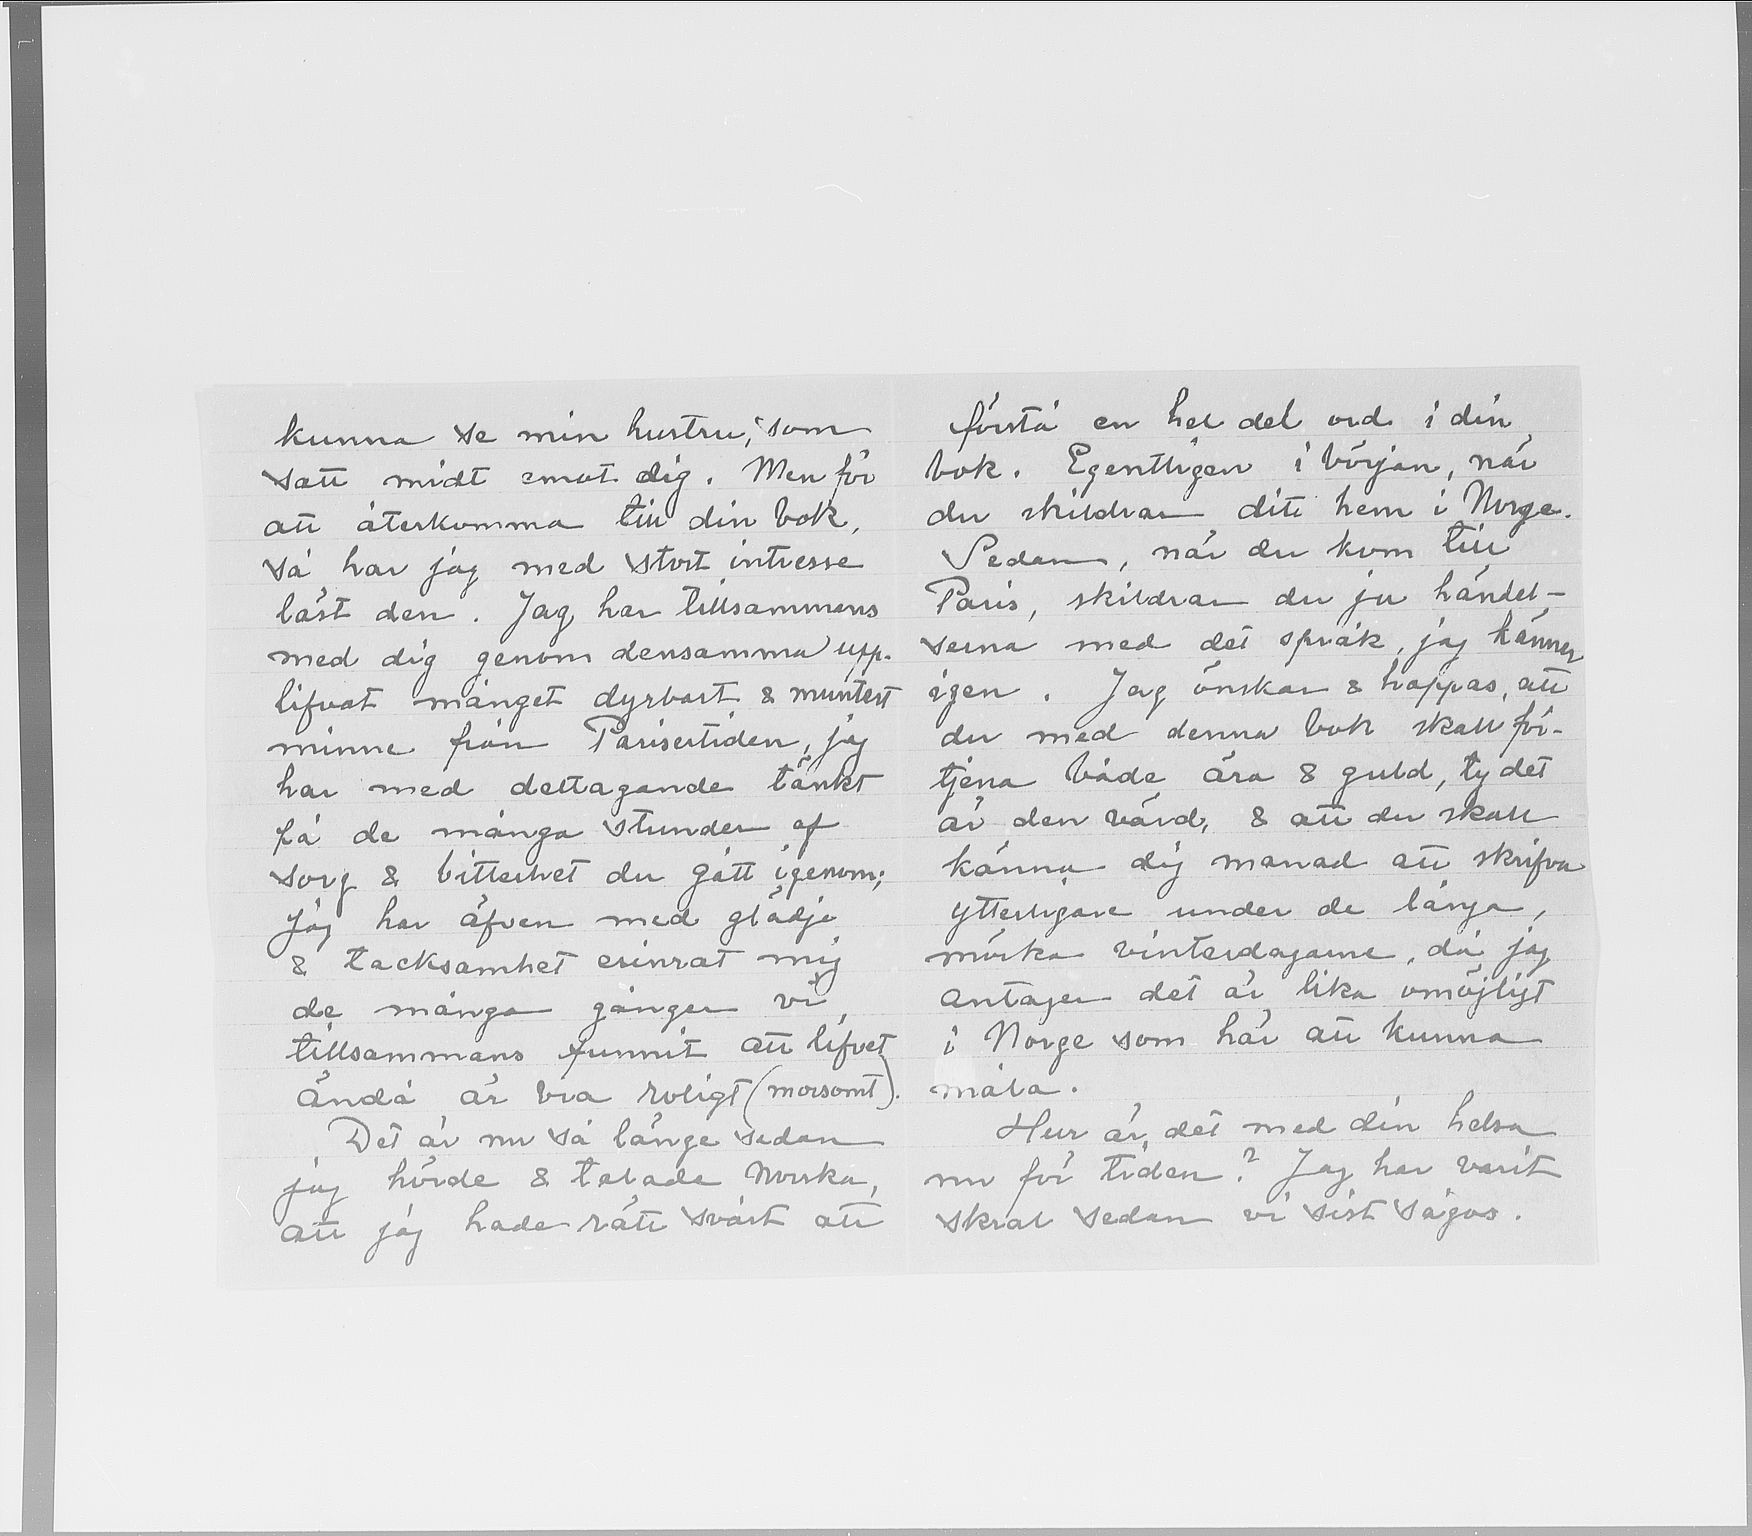 kunna se min hustru, som
satt midt emot dig. Men för
att återkomma till din bok,
så har jag med stort intresse
läst den. Jag har tillsammans
med dig genom densamma upp-
lifvat månget dyrbart & muntert
minne från Parisertiden, jag
har med deltagande tänkt
på de många stunder af
sorg & bitterhet du gått igenom;
jag har äfven med glädje
& tacksamhet erinrat mig
de många gånger vi
tillsammans funnit att lifvet
ändå är bra roligt (morsomt).
Det är nu så länge sedan
jag hörde & talade Norska,
att jag hade rätt svårt att
förstå en hel del ord i din
bok. Egentligen i början, när
du skildrar ditt hem i Norge.
Sedan, när du kom till
Paris, skildrar du ju händel-
serna med det språk, jag känner
igen. Jag önskar & hoppas, att
du med denna bok skall för-
tjena både ära & guld, ty det
är den värd, & att du skall
känna dig manad att skrifva
ytterligare under de långa,
mörka vinterdagarne, då jag
antager det är lika omöjligt
i Norge som här att kunna
måla.
Hur är det med din helsa
nu för tiden? Jag har varit
skral sedan vi sist sågos.